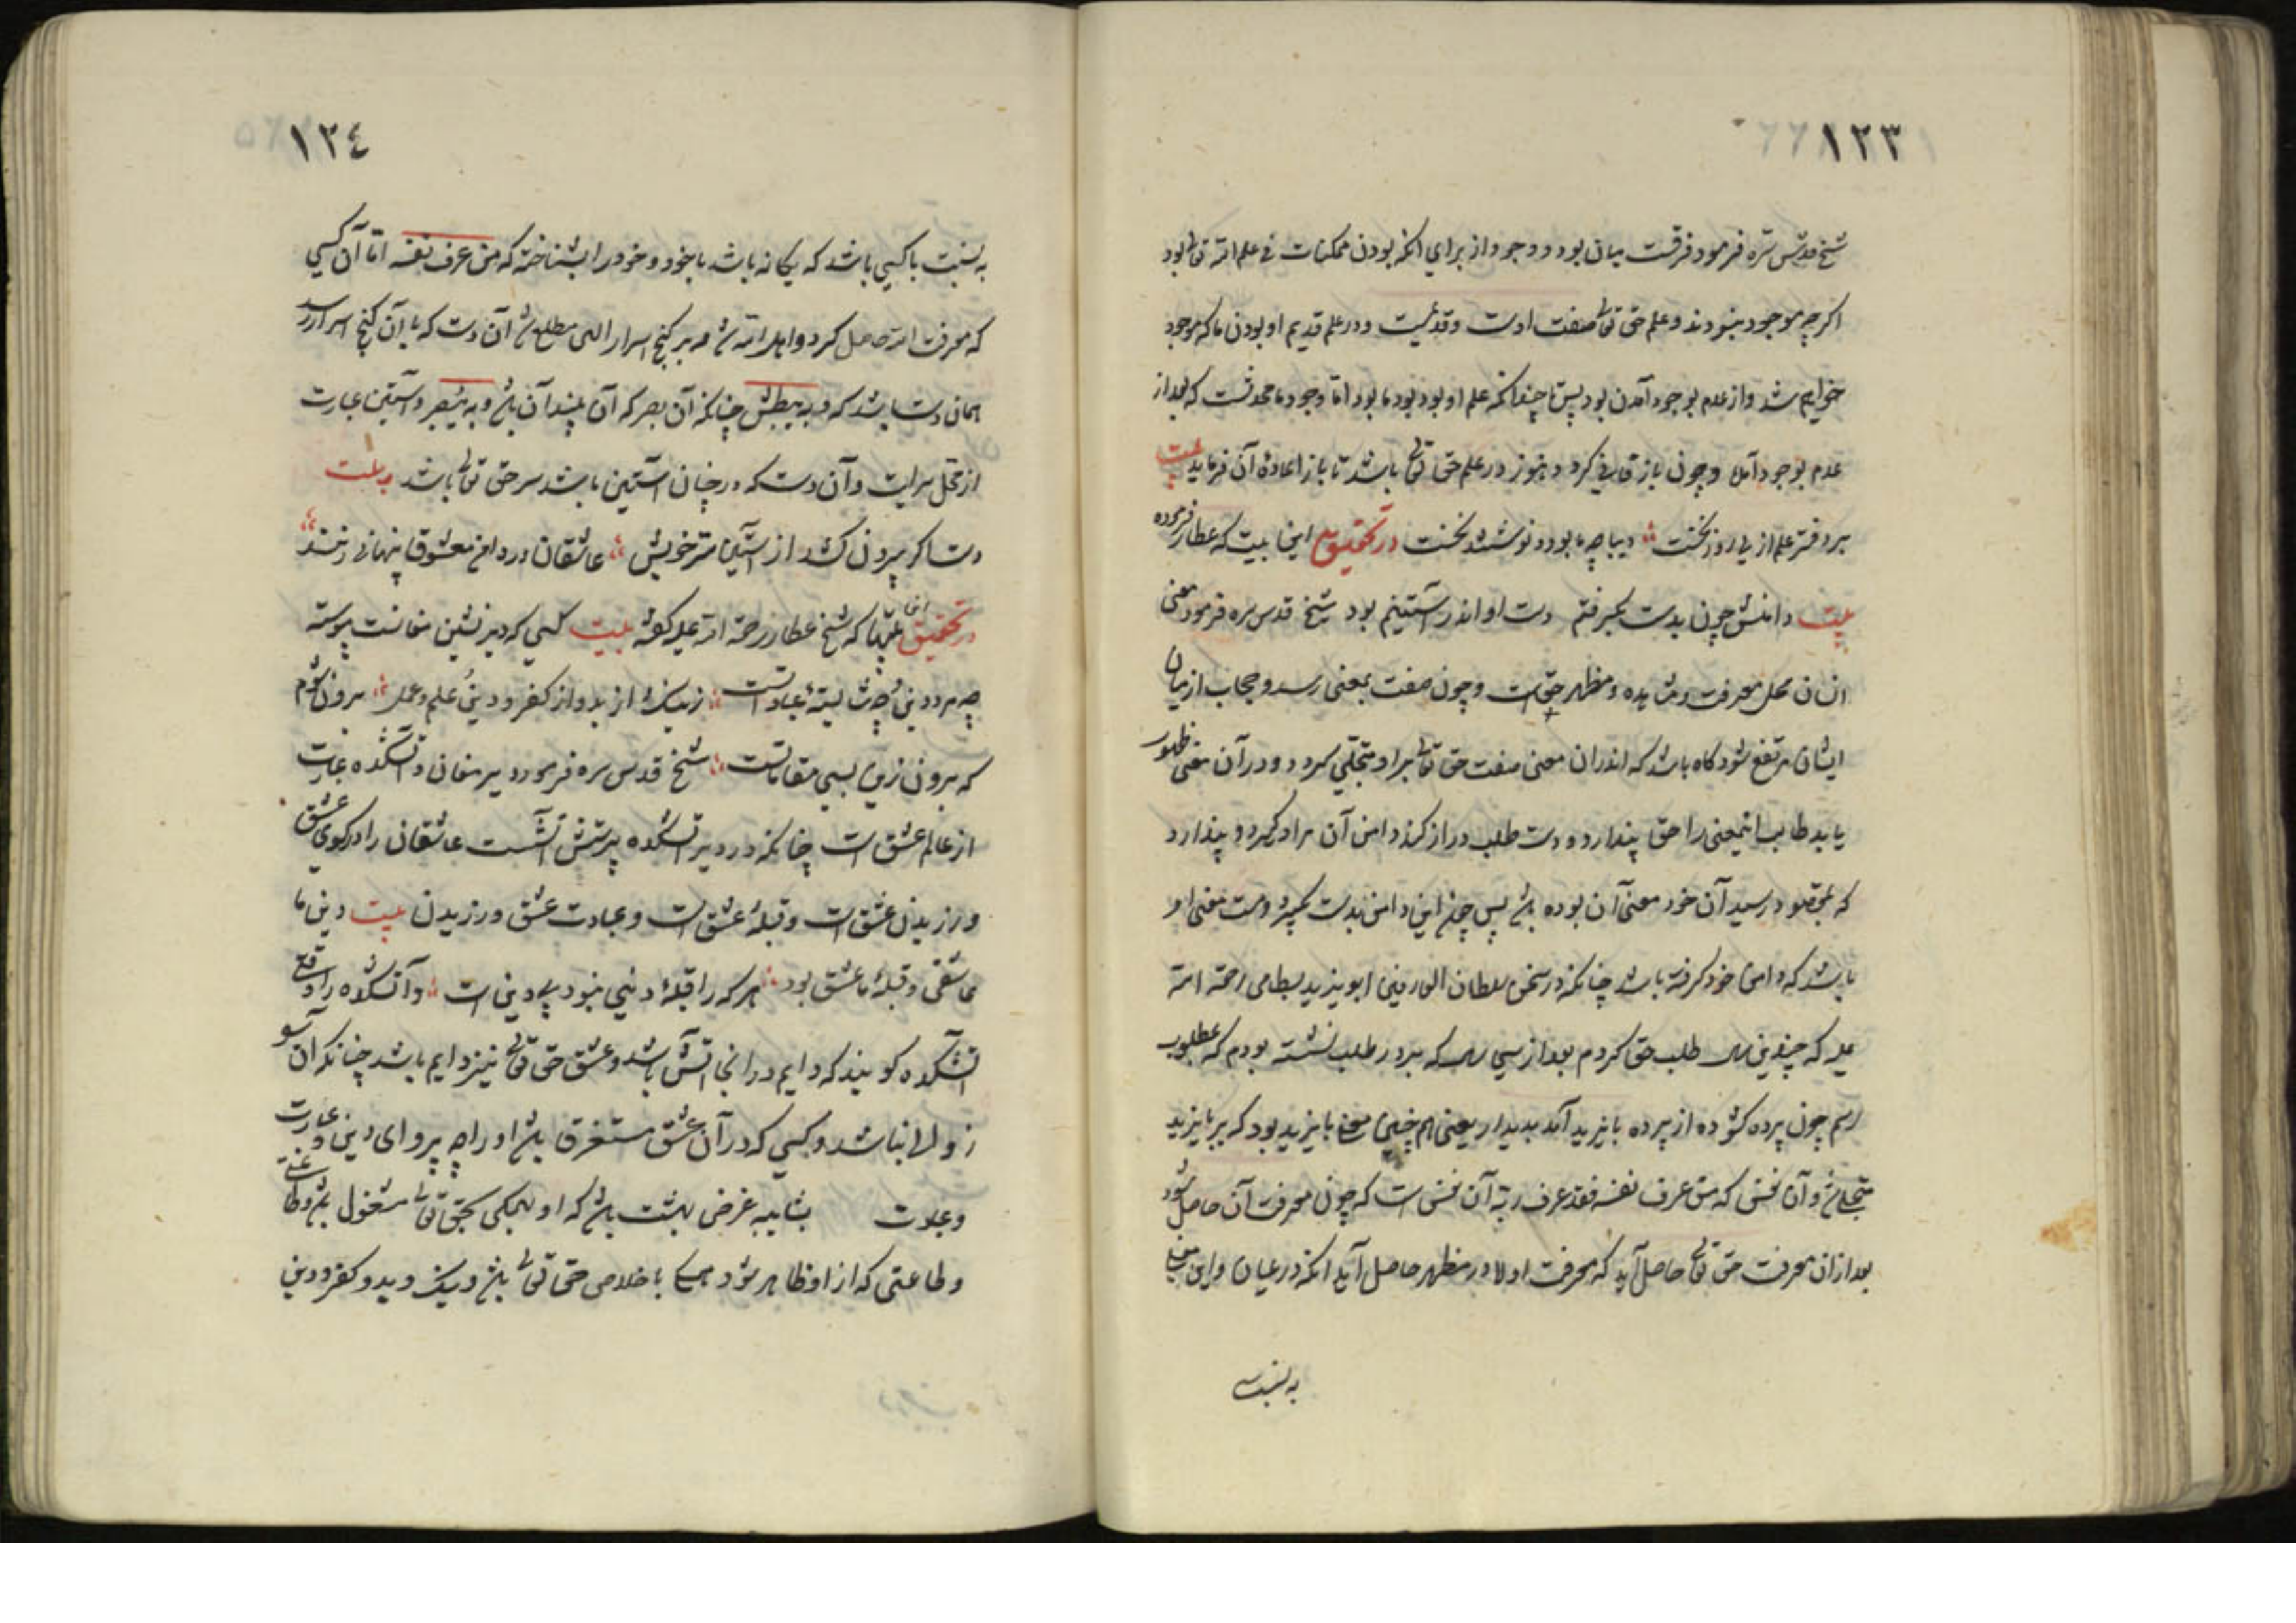 ۱۲۳
شیخ قدس سره فرمود فرقست میان بود و وجود از برای آنکه بودن ممکنات فی علم الله تعالی بود
اکرچه موجود نبودند و علم حق تعالی صفت اوست و قدیمست و در علم قدیم او بودن ما که موجود
خواهیم شد و از عدم بوجود آمدن بود پس تا چندانکه علم او بود بود ما بود اما وجود ما محدثست که بعد از
عدم بوجود آمد و چون باز فانی کردد هنوز در علم حق تعالی باشد تا باز اعادهٔ آن فرماید بیت
بر دفتر علم از پی روز نخست دیباچه ما بود نوشتند نخست در تحقیق این بیت که عطار فرموده
بیت دامنش چون بدست بکرفتم دست او اندر آستینم بود شیخ قدس سره فرمود معنی
انسان محل معرفت و مشاهده و مظهر حق است و چون صفت بمعنی رسد و حجاب از میان
ایشان مرتفع شود کاه باشد که اندران معنی صفت حق تعالی بر او متجلی کردد و در آن معنی ظهور
یابد طالب آنمعنی را حق پندارد و دست طلب دراز کند دامن آن مراد کیرد و پندارد
که بمقصود رسید آن خود معنی آن بوده باشد پس چون این دامن بدست کیرد دست معنی او
باشد که دامن خود کرفته باشد چنانکه در سخن سلطان العارفین ابو یزید بسطامی رحمة الله
علیه که چندین سال طلب حق کردم بعد از سی سال که بر در طلب نشسته بودم که مطلوب
رسم چون پرده کشوده از پرده بایزید آمد بدیدار یعنی هم چنین معنی بایزید بود که بر بایزید
متجلی شد و آن نفسی که من عرف نفسه فقد عرف ربه آن نفس است که چون معرفت آن حاصل شود
بعد از ان معرفت حق تعالی حاصل آید که معرفت اولا در مظهر حاصل آید آنکه در عیان و این معنی
به نسبت
۱۲٤
به نسبت با کسی باشد که یکانه باشد با خود و خود را بشناخته که من عرف نفسه اما آن کسی
که معرفت الله حاصل کرد و اهل الله شد و بر کنج اسرار الهی مطلع شد آن دست که با آن کنج اسرار رسد
همان دست باشد که و به یبطش چنانکه آن بصر که آن بیند آن باشد و به یبصر و آستین عبارت
از محل سر است و آن دست که در چنان آستین باشد سر حق تعالی باشد بیت
دست اکر بیرون کشد از آستین ستر خویش عاشقان در دامن معشوق پنهانی زنند
در تحقیق این بیتها که شیخ عطار رحمة الله علیه کفته بیت کسی که دیر نشین مغانست پیوسته
چه مرد دین و چه شایستهٔ عباداتست ز نیک و از بد و از کفر و دین و علم و عمل برون شوم
که برون زین بسی مقاماتست شیخ قدس سره فرمود دیر مغان و آتشکده عبارت
از عالم عشق است چنانکه در دیر آتشکده پرستش آتشست عاشقان را در کوی عشق
ورزیدن عشق است و قبلهٔ عشق است و عبادت عشق ورزیدن بیت دین ما
عاشقی و قبلهٔ ما عشق بود هر که را قبلهٔ دینی نبود بی دین است و آتشکده را وقتی
آتشکده کویند که دایم در آنجا آتش باشد و عشق حق تعالی نیز دایم باشد چنانکه آن سو
زوال نباشد و کسی که در آن عشق مستغرق باشد او را چه پروای دین و عبارت
و عبادت بشایبه غرض بهشت باشد که او بهمکی بحق تعالی مشغول باشد و طاعتی
و طاعتی که از او ظاهر شود همه با خلاص حق تعالی باشد و نیک و بد و کفر و دین